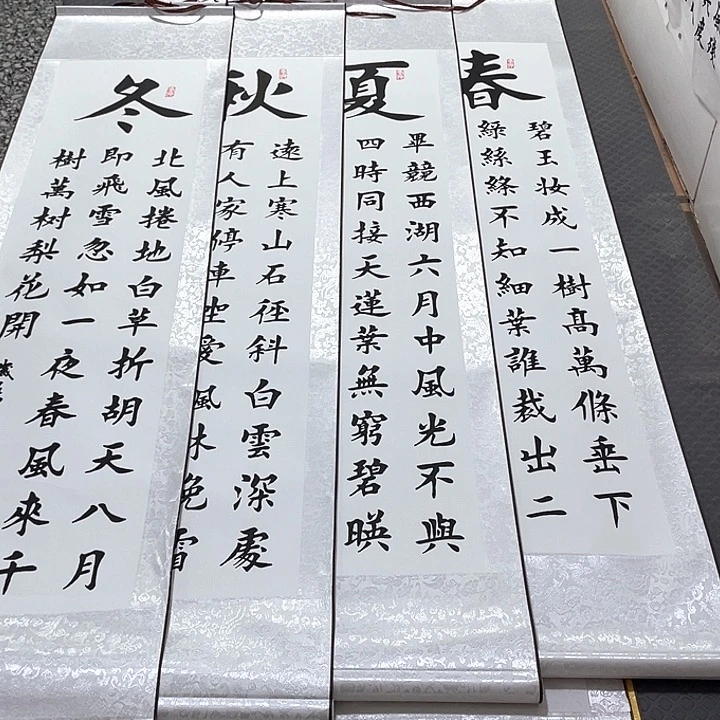 春
碧玉妆成一樹高萬條垂下
緑絲絛不知細葉誰裁出二
夏
畢競西湖六月中風光不與
四時同接天蓮葉無窮碧暎
秋
遠上寒山石徑斜白雲深處
有人家停車坐愛風林晚霜
冬
北風捲地白草折胡天八月
即飛雪忽如一夜春風來千
樹萬树梨花開